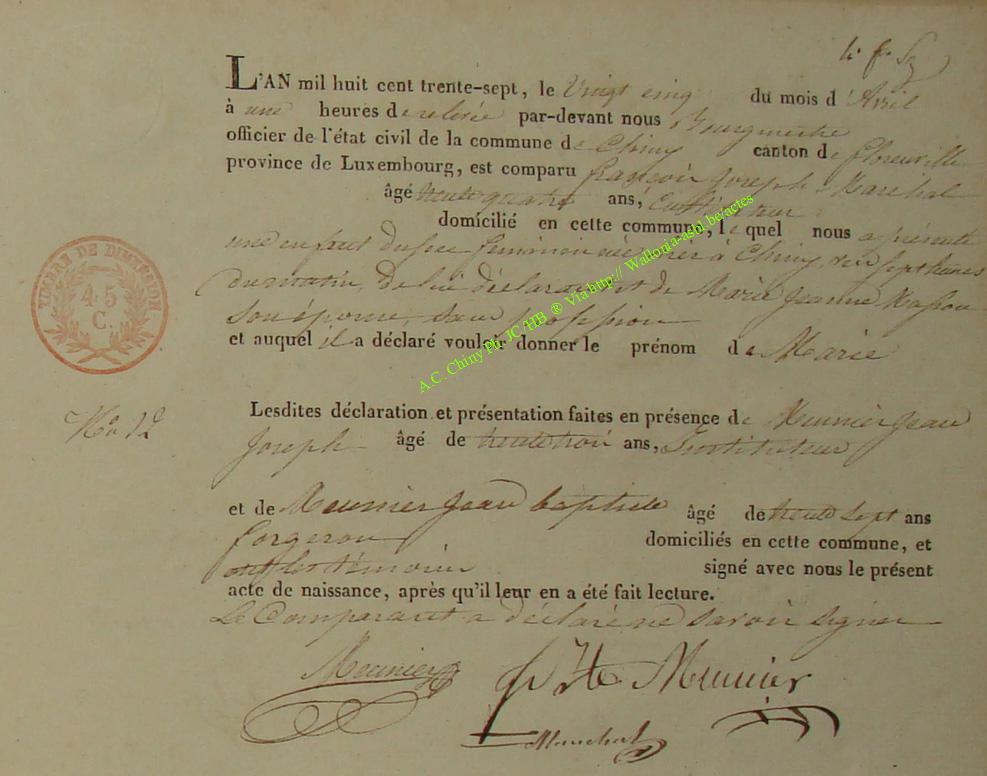 L'AN mil huit cent trente-sept, le Vingt cinq du mois d'Avril
à une heures de relevée par-devant nous Bourgmestre
officier de l'état civil de la commune de Chiny canton de florenville
province de Luxembourg, est comparu françois Joseph Marechal
âgé trente quatre ans, Cultivateur
domicilié en cette commune, lequel nous a présenté
une enfant du sexe féminin née à Chiny, sept heures
du matin, de lui déclarant et de Marie Jeanne
son épouse, sans profession
et auquel il a déclaré vouloir donner le prénom de Marie
TIMBRE DE DIMENSION
45
C.
No 12
Lesdites déclaration et présentation faites en présence de Meunier Jean
Joseph âgé de trente trois ans, Instituteur
et de Meunier Jean baptiste âgé de trente sept ans
forgeron domiciliés en cette commune, et
ont les témoins signé avec nous le présent
acte de naissance, après qu'il leur en a été fait lecture.
Le Comparant a déclaré ne savoir signer
Meunier
Meunier
Marechal
A.C. Chiny Ph. JC/HB ® Via http:// Wallonia-asbl.be/actes